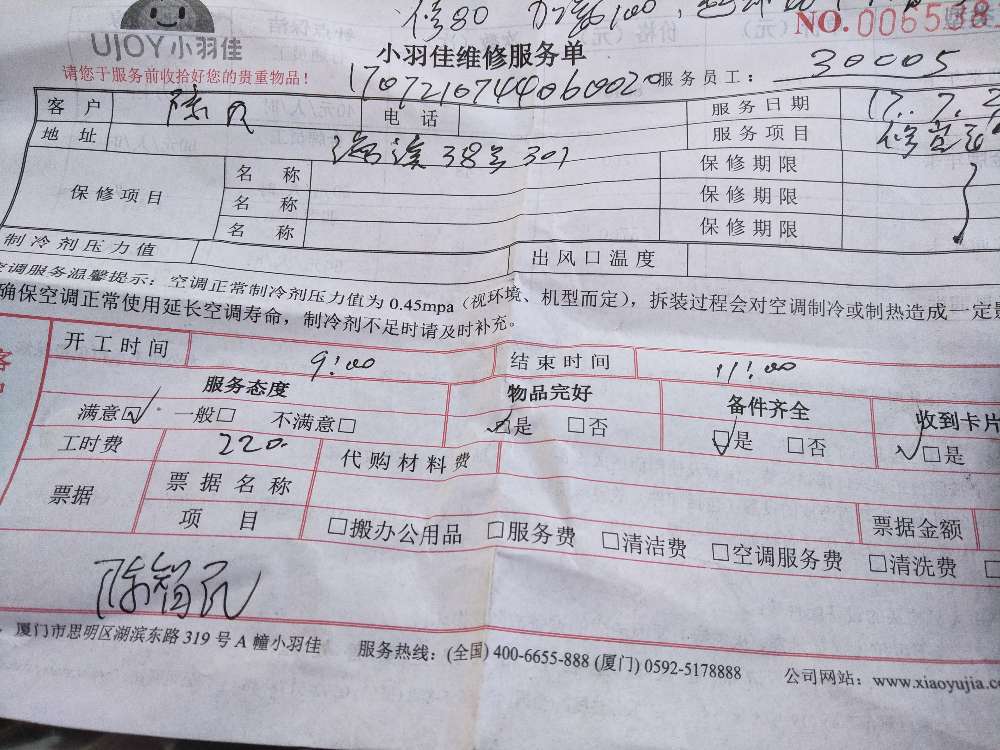 修80 加氨100
NO.006538
UJOY小羽佳
小羽佳维修服务单
请您于服务前收拾好您的贵重物品!
170721074406 0020 服务员工: 30005
客户 陈民 电话 服务日期 17.7.2
地址 38号301 服务项目 修
保修项目 名称 保修期限
名称 保修期限
名称 保修期限
制冷剂压力值 出风口温度
空调服务温馨提示:空调正常制冷剂压力值为0.45mpa(视环境、机型而定),拆装过程会对空调制冷或制热造成一定
确保空调正常使用延长空调寿命,制冷剂不足时请及时补充。
开工时间 9:00 结束时间 11:00
服务态度 物品完好 备件齐全 收到卡片
满意☑ 一般□ 不满意□ ☑是 □否 ☑是 □否 ☑是
工时费 220. 代购材料费
票据 票据名称
项目 □搬办公用品 □服务费 □清洁费 □空调服务费 □清洗费 票据金额
陈智民
厦门市思明区湖滨东路319号A幢小羽佳 服务热线:(全国)400-6655-888 (厦门) 0592-5178888 公司网站:www.xiaoyujia.c